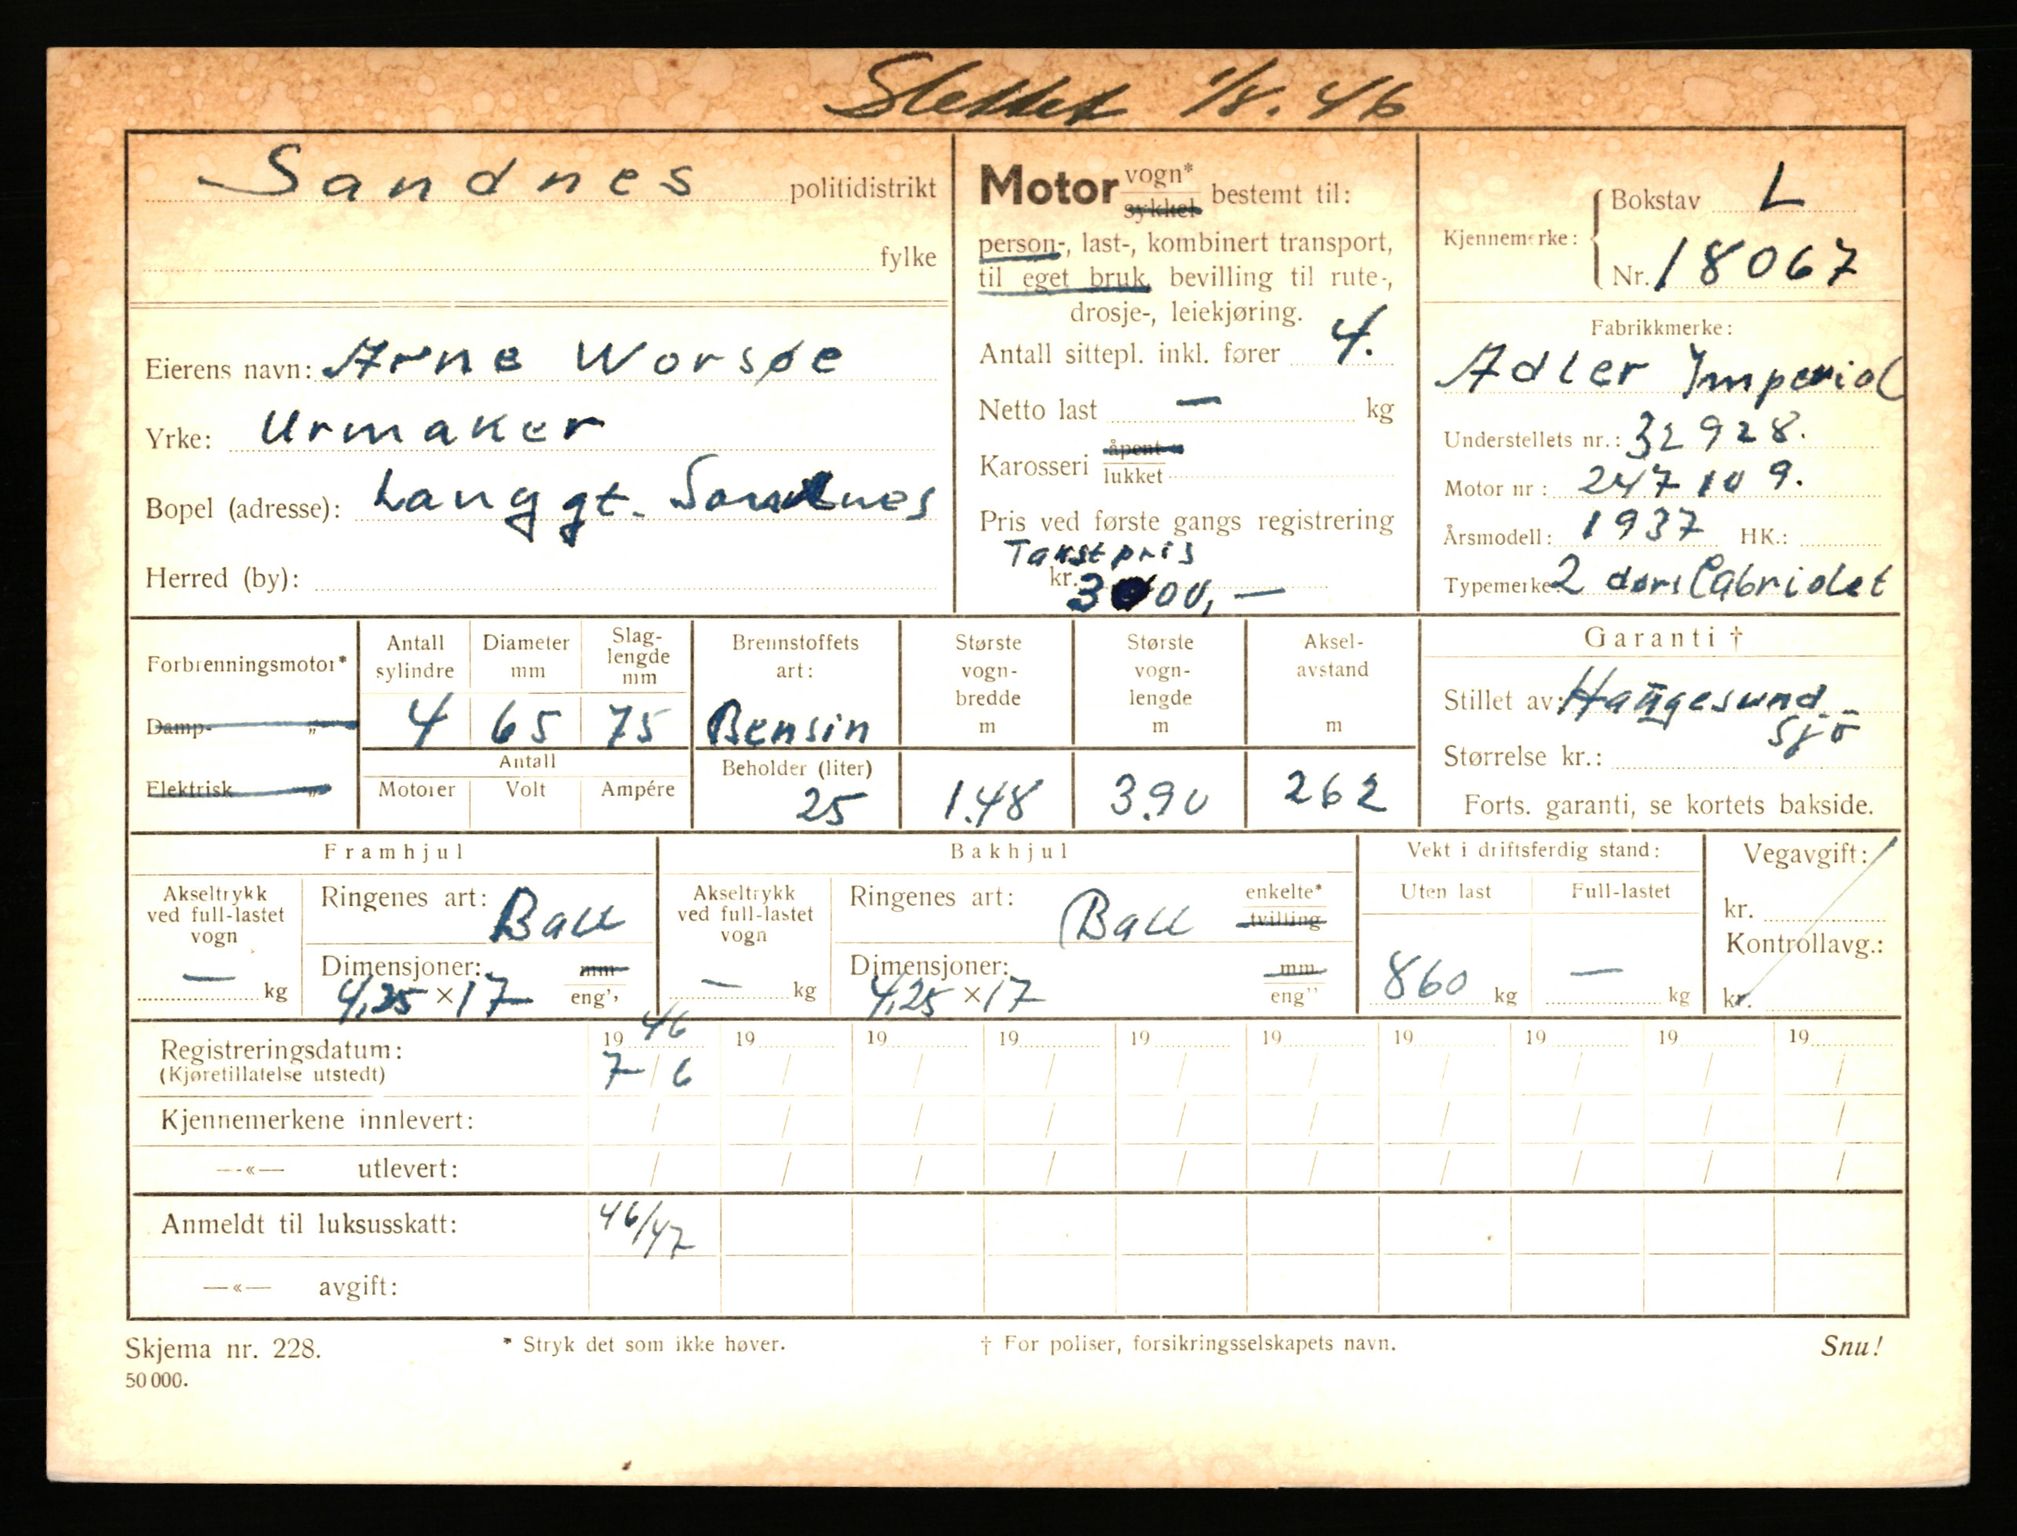 Slettet 1/8.46
Sandnes politidistrikt
fylke
Eierens navn: Arne Worsøe
Yrke: Urmaker
Bopel (adresse): Langgt. Sandnes
Herred (by):
Motor vogn* sykkel bestemt til:
person-, last-, kombinert transport,
til eget bruk, bevilling til rute-,
drosje-, leiekjøring.
Antall sittepl. inkl. fører 4.
Netto last — kg
Karosseri åpent lukket
Pris ved første gangs registrering
Takstpris
kr. 3000,—
Kjennemerke: Bokstav L
Nr. 18067
Fabrikkmerke:
Adler Imperial
Understellets nr.: 32928.
Motor nr: 247109.
Årsmodell: 1937 HK.:
Typemerke: 2 dørs Cabriolet
Forbrenningsmotor*
Damp- „
Elektrisk „
Antall sylindre 4
Diameter mm 65
Slag-lengde mm 75
Antall
Motorer Volt Ampére
Brennstoffets art: Bensin
Beholder (liter) 25
Største vogn-bredde m 1.48
Største vogn-lengde m 3.90
Aksel-avstand m 262
Garanti †
Stillet av: Haugesund
Sjø
Størrelse kr.:
Forts. garanti, se kortets bakside.
Framhjul
Akseltrykk ved full-lastet vogn — kg
Ringenes art: Ball
Dimensjoner: mm
4,25 × 17 eng''
Bakhjul
Akseltrykk ved full-lastet vogn — kg
Ringenes art: Ball enkelte* tvilling
Dimensjoner: mm
4,25 × 17 eng''
Vekt i driftsferdig stand:
Uten last Full-lastet
860 kg — kg
Vegavgift:
kr.
Kontrollavg.:
kr.
Registreringsdatum: 1946 19 19 19 19 19 19 19 19 19
(Kjøretillatelse utstedt) 7/6 / / / / / / / / /
Kjennemerkene innlevert: / / / / / / / / / /
—«— utlevert: / / / / / / / / / /
Anmeldt til luksusskatt: 46/47
—«— avgift:
Skjema nr. 228. * Stryk det som ikke høver. † For poliser, forsikringsselskapets navn. Snu!
50 000.